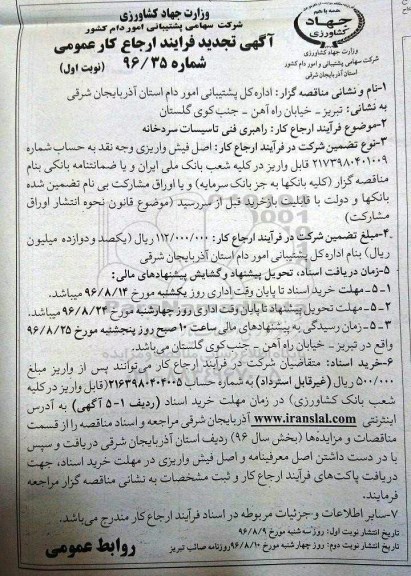 وزارت جهاد کشاورزی
شرکت سهامی پشتیبانی امور دام کشور
آگهی تجدید فرایند ارجاع کار عمومی
شماره ۹۶/۳۵ (نوبت اول)
همه با هم
جهاد
کشاورزی
وزارت جهاد کشاورزی
شرکت سهامی پشتیبانی امور دام کشور
استان آذربایجان شرقی
۱-نام و نشانی مناقصه گزار: اداره کل پشتیبانی امور دام استان آذربایجان شرقی
به نشانی: تبریز - خیابان راه آهن - جنب کوی گلستان
۲-موضوع فرآیند ارجاع کار: راهبری فنی تاسیسات سردخانه
۳-نوع تضمین شرکت در فرآیند ارجاع کار: اصل فیش واریزی وجه نقد به حساب شماره
۲۱۷۳۹۸۰۴۰۱۰۰۹ قابل واریز در کلیه شعب بانک ملی ایران و یا ضمانتنامه بانکی بنام
مناقصه گزار (کلیه بانکها به جز بانک سرمایه) و یا اوراق مشارکت بی نام تضمین شده
بانکها و دولت با قابلیت بازخرید قبل از سررسید (موضوع قانون نحوه انتشار اوراق
مشارکت)
۴-مبلغ تضمین شرکت در فرآیند ارجاع کار: ۱۱۲/۰۰۰/۰۰۰ ریال (یکصد و دوازده میلیون
ریال) بنام اداره کل پشتیبانی امور دام استان آذربایجان شرقی
۵-زمان دریافت اسناد، تحویل پیشنهاد و گشایش پیشنهادهای مالی:
۱-۵-مهلت خرید اسناد تا پایان وقت اداری روز یکشنبه مورخ ۹۶/۸/۱۴ میباشد.
۲-۵-مهلت تحویل پیشنهاد تا پایان وقت اداری روز چهارشنبه مورخ ۹۶/۸/۲۴ میباشد.
۳-۵-زمان رسیدگی به پیشنهادهای مالی ساعت ۱۰ صبح روز پنجشنبه مورخ ۹۶/۸/۲۵
واقع در تبریز - خیابان راه آهن - جنب کوی گلستان می‌باشد.
۶-خرید اسناد: متقاضیان شرکت در فرآیند ارجاع کار می‌توانند پس از واریز مبلغ
۵۰۰/۰۰۰ ریال (غیرقابل استرداد) به شماره حساب ۲۱۶۳۹۸۰۴۰۴۰۰۵ (قابل واریز در کلیه
شعب بانک کشاورزی) در زمان مهلت خرید اسناد (ردیف ۱-۵ آگهی) به آدرس
اینترنتی www.iranslal.com آذربایجان شرقی مراجعه و اسناد مناقصه را از قسمت
مناقصات و مزایده‌ها (بخش سال ۹۶) ردیف استان آذربایجان شرقی دریافت و سپس
با در دست داشتن اصل معرفینامه و اصل فیش واریزی در مهلت خرید اسناد، جهت
دریافت پاکت‌های فرآیند ارجاع کار و ثبت مشخصات به نشانی مناقصه گزار مراجعه
فرمایند.
۷-سایر اطلاعات و جزئیات مربوطه در اسناد فرآیند ارجاع کار مندرج می‌باشد.
تاریخ انتشار نوبت اول: روز سه شنبه مورخ ۹۶/۸/۹
تاریخ انتشار نوبت دوم: روز چهارشنبه مورخ ۹۶/۸/۱۰ روزنامه صائب تبریز
روابط عمومی